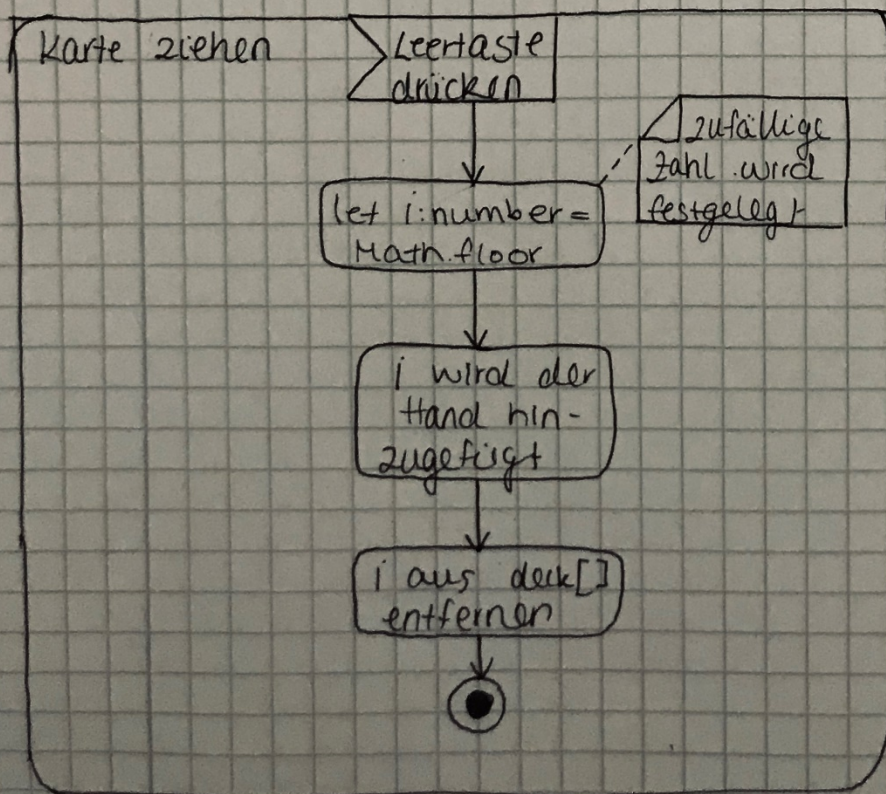 Karte ziehen
Leertaste
drücken
zufällige
Zahl wird
festgelegt
let i:number=
Math.floor
i wird der
Hand hin-
zugefügt
i aus deck[]
entfernen